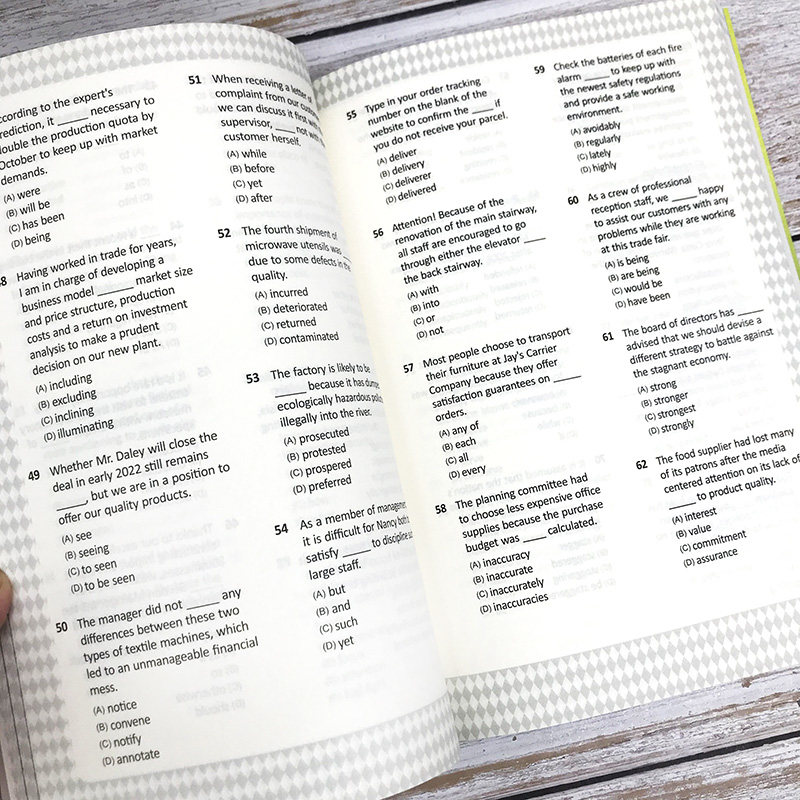 ccording to the expert's
rediction, it ______ necessary to
double the production quota by
October to keep up with market
demands.
(A) were
(B) will be
(C) has been
(D) being
8 Having worked in trade for years,
I am in charge of developing a
business model ______ market size
and price structure, production
costs and a return on investment
analysis to make a prudent
decision on our new plant.
(A) including
(B) excluding
(C) inclining
(D) illuminating
49 Whether Mr. Daley will close the
deal in early 2022 still remains
_____, but we are in a position to
offer our quality products.
(A) see
(B) seeing
(C) to seen
(D) to be seen
50 The manager did not _____ any
differences between these two
types of textile machines, which
led to an unmanageable financial
mess.
(A) notice
(B) convene
(C) notify
(D) annotate
51 When receiving a letter of
complaint from our
we can discuss it first
supervisor, ____ not with
customer herself.
(A) while
(B) before
(C) yet
(D) after
52 The fourth shipment of
microwave utensils was
due to some defects in the
quality.
(A) incurred
(B) deteriorated
(C) returned
(D) contaminated
53 The factory is likely to be
_____ because it has
ecologically hazardous
illegally into the river.
(A) prosecuted
(B) protested
(C) prospered
(D) preferred
54 As a member of
it is difficult for Nancy both
satisfy _____ to discipline
large staff.
(A) but
(B) and
(C) such
(D) yet
55 Type in your order tracking
number on the blank of the
website to confirm the ____ if
you do not receive your parcel.
(A) deliver
(B) delivery
(C) deliverer
(D) delivered
56 Attention! Because of the
renovation of the main stairway,
all staff are encouraged to go
through either the elevator ____
the back stairway.
(A) with
(B) into
(C) or
(D) not
57 Most people choose to transport
their furniture at Jay's Carrier
Company because they offer
satisfaction guarantees on _____
orders.
(A) any of
(B) each
(C) all
(D) every
58 The planning committee had
to choose less expensive office
supplies because the purchase
budget was ____ calculated.
(A) inaccuracy
(B) inaccurate
(C) inaccurately
(D) inaccuracies
59 Check the batteries of each fire
alarm ____ to keep up with
the newest safety regulations
and provide a safe working
environment.
(A) avoidably
(B) regularly
(C) lately
(D) highly
60 As a crew of professional
reception staff, we _____ happy
to assist our customers with any
problems while they are working
at this trade fair.
(A) is being
(B) are being
(C) would be
(D) have been
61 The board of directors has _____
advised that we should devise a
different strategy to battle against
the stagnant economy.
(A) strong
(B) stronger
(C) strongest
(D) strongly
62 The food supplier had lost many
of its patrons after the media
centered attention on its lack of
_____ to product quality.
(A) interest
(B) value
(C) commitment
(D) assurance